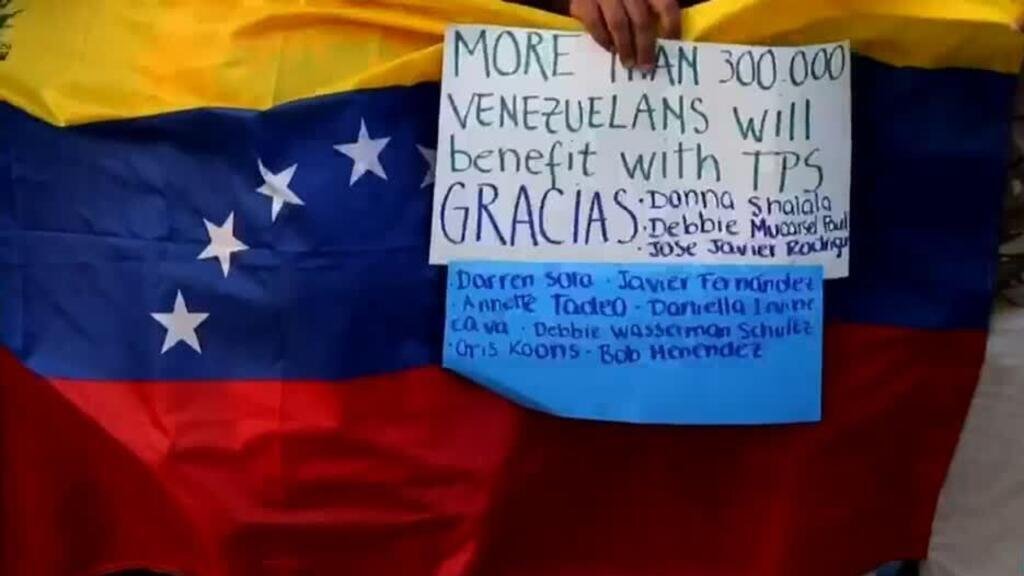 MORE THAN 300.000
VENEZUELANS Will
benefit with TPS
GRACIAS
·Donna Shalala
·Debbie Mucarsel Paul
·JOSE Javier Rodrigu
·Darren Soto · Javier Fernández
·Annette Tadeo - Daniella Lavine
cava · Debbie Wasserman Schultz
·Cris Koons · Bob Menendez